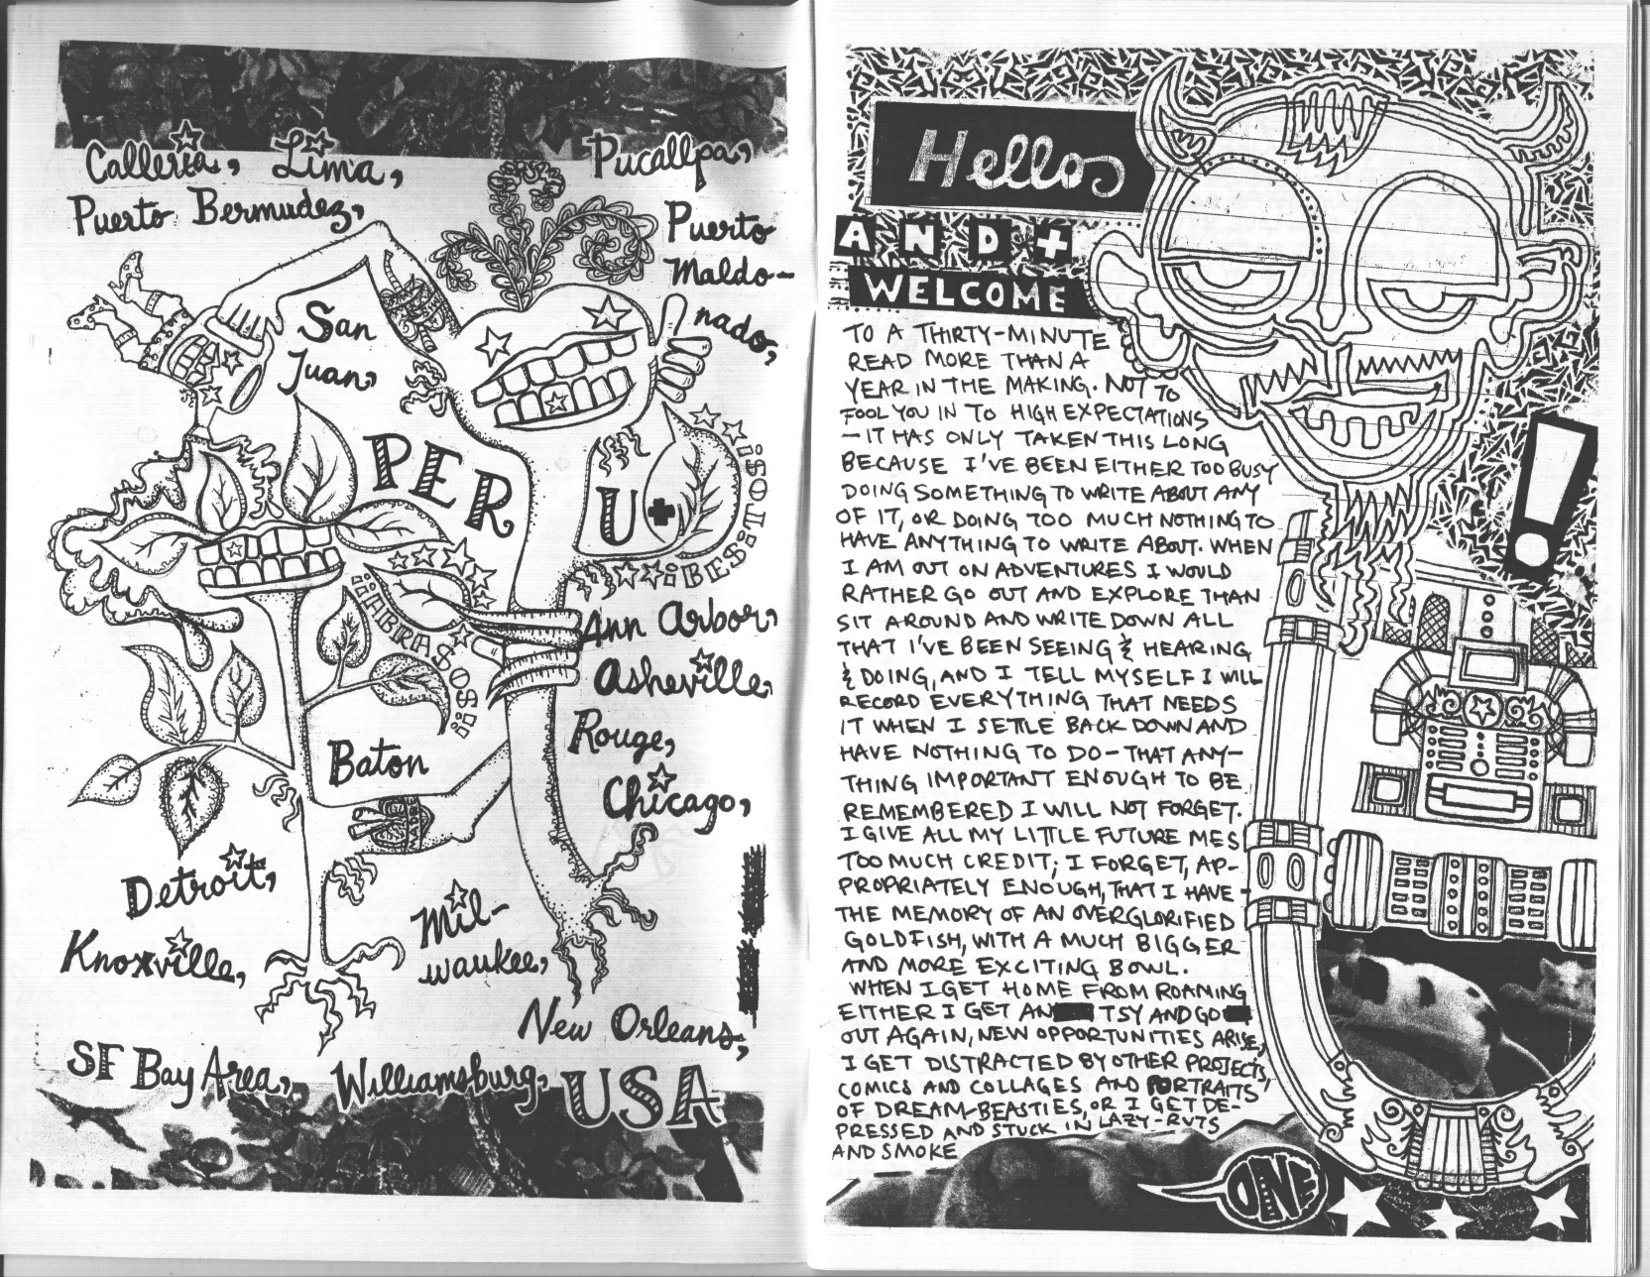 Calleria, Lima,
Pucallpa,
Puerto Bermudez,
Puerto
Maldo-
nado,
San
Juan,
PERU+
¡BESiTOS!
¡¡ABRASOS!!
Ann Arbor,
Asheville,
Baton
Rouge,
Chicago,
Detroit,
Mil-
waukee,
Knoxville,
New Orleans,
SF Bay Area,
Williamsburg,
USA
Hellos
AND +
WELCOME
TO A THIRTY-MINUTE
READ MORE THAN A
YEAR IN THE MAKING. NOT TO
FOOL YOU IN TO HIGH EXPECTATIONS
—IT HAS ONLY TAKEN THIS LONG
BECAUSE I'VE BEEN EITHER TOO BUSY
DOING SOMETHING TO WRITE ABOUT ANY
OF IT, OR DOING TOO MUCH NOTHING TO
HAVE ANYTHING TO WRITE ABOUT. WHEN
I AM OUT ON ADVENTURES I WOULD
RATHER GO OUT AND EXPLORE THAN
SIT AROUND AND WRITE DOWN ALL
THAT I'VE BEEN SEEING & HEARING
& DOING, AND I TELL MYSELF I WILL
RECORD EVERYTHING THAT NEEDS
IT WHEN I SETTLE BACK DOWN AND
HAVE NOTHING TO DO - THAT ANY-
THING IMPORTANT ENOUGH TO BE
REMEMBERED I WILL NOT FORGET.
I GIVE ALL MY LITTLE FUTURE MES
TOO MUCH CREDIT; I FORGET, AP-
PROPRIATELY ENOUGH, THAT I HAVE
THE MEMORY OF AN OVERGLORIFIED
GOLDFISH, WITH A MUCH BIGGER
AND MORE EXCITING BOWL.
WHEN I GET HOME FROM ROAMING
EITHER I GET AN TSY AND GO
OUT AGAIN, NEW OPPORTUNITIES ARISE,
I GET DISTRACTED BY OTHER PROJECTS,
COMICS AND COLLAGES AND PORTRAITS
OF DREAM-BEASTIES, OR I GET DE-
PRESSED AND STUCK IN LAZY-RUTS
AND SMOKE
ONE
!